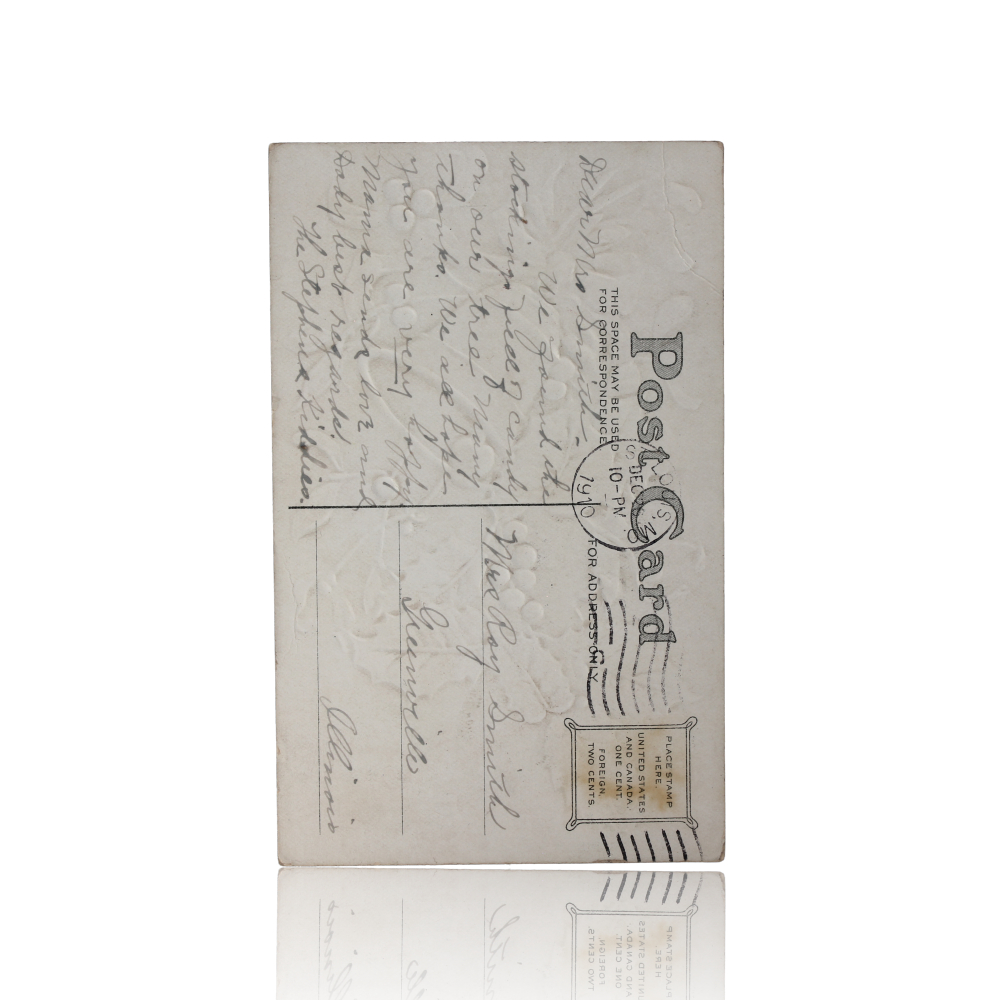 Post Card
THIS SPACE MAY BE USED
FOR CORRESPONDENCE
FOR ADDRESS ONLY
DEC
10-PM
1910
PLACE STAMP
HERE.
UNITED STATES
AND CANADA,
ONE CENT.
FOREIGN,
TWO CENTS.
Dear Mrs Smith.
We found the
stockings full of candy
on our tree. Many
thanks. We all hope
you are very happy.
Mama sends love and
Baby best regards
The Stephens Kiddies.
Mrs Roy Smith
Greenville
Illinois